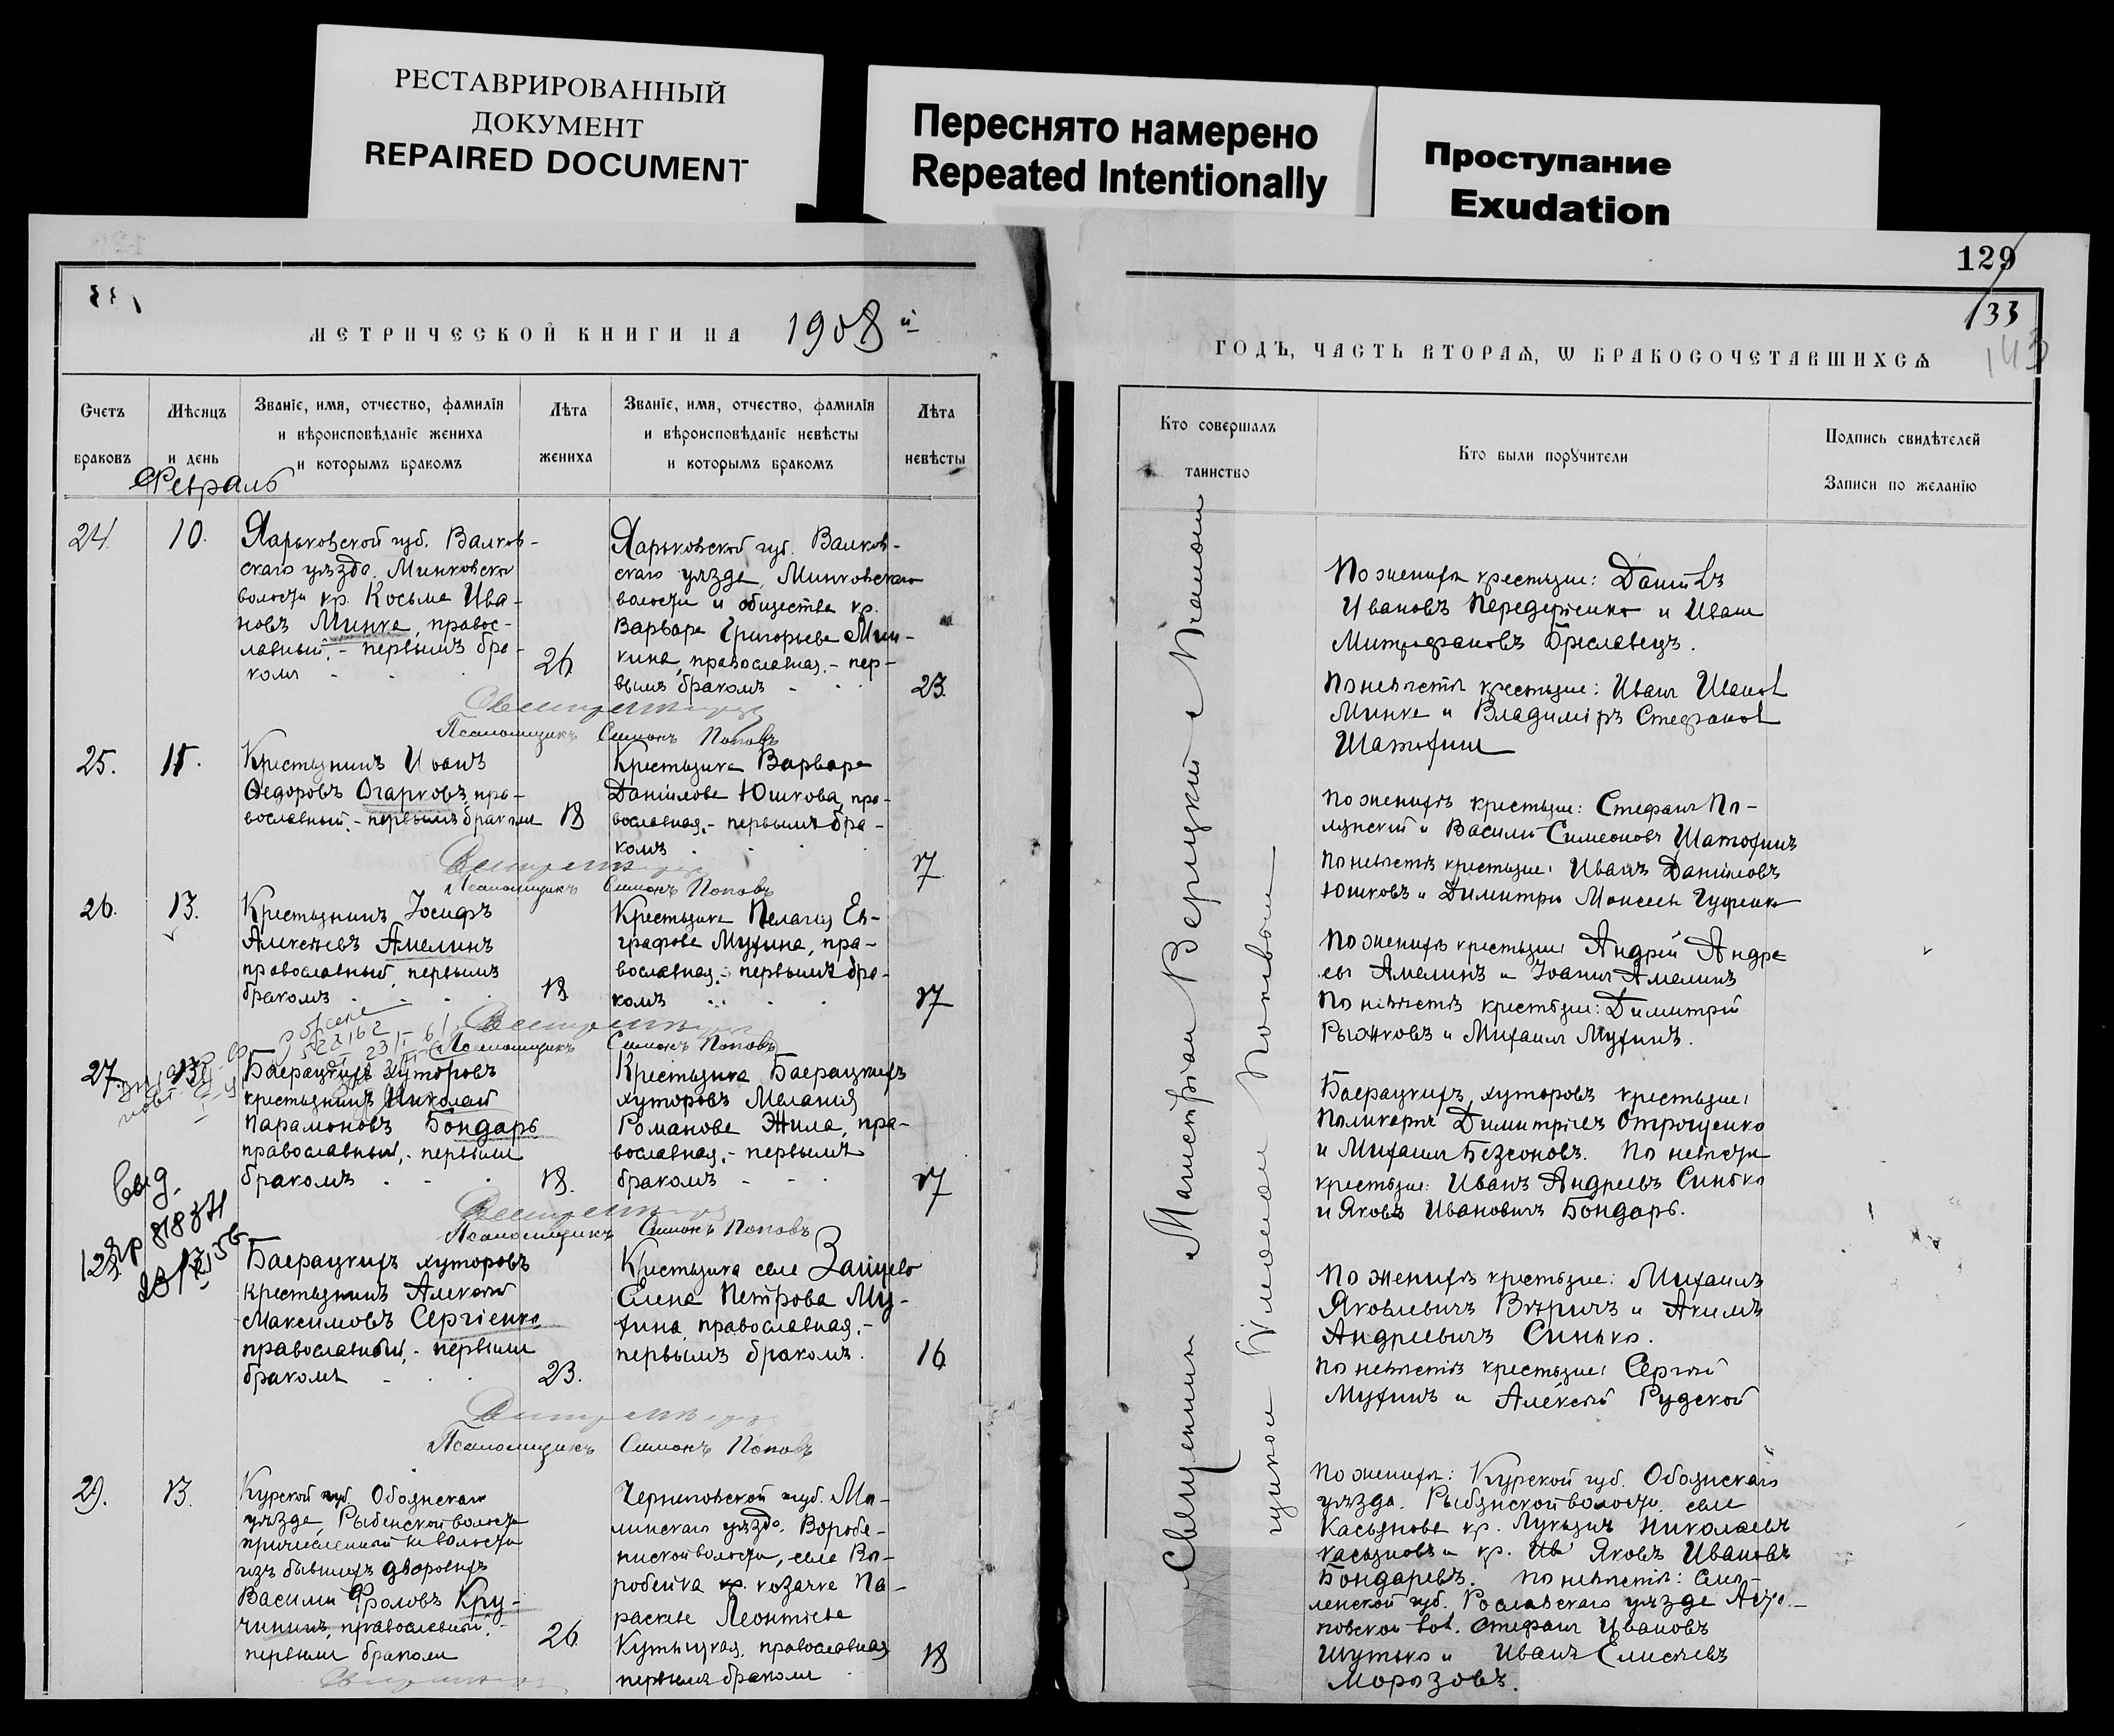 РЕСТАВРИРОВАННЫЙ
ДОКУМЕНТ
REPAIRED DOCUMENT
Переснято намерено
Repeated Intentionally
Проступание
Exudation
МЕТРИЧЕСКОЙ КНИГИ НА 1908 й
Счетъ
браковъ
Мѣсяцъ
и день
Званіе, имя, отчество, фамилія
и вѣроисповѣданіе жениха
и которымъ бракомъ
Лѣта
жениха
Званіе, имя, отчество, фамилія
и вѣроисповѣданіе невѣсты
и которымъ бракомъ
Лѣта
невѣсты
Февраль
24.
10.
Харьковской губ. Валков-
скаго уѣзда, Минковской
волости кр. Косьма Ива-
новъ Минка, правос-
лавный, - первымъ бра-
комъ
26
Харьковской губ. Валков-
скаго уѣзда, Минковскаго
волости и общества кр.
Варвара Григорьева Мин-
кина, православная, - пер-
вымъ бракомъ
23
Псаломщикъ Симонъ Поповъ
25.
Крестьянинъ Иванъ
Ѳедоровъ Огарковъ, пра-
вославный, - первымъ бракомъ
18
Крестьянка Варвара
Даніилова Юшкова, пра-
вославная, - первымъ бра-
комъ
17
Псаломщикъ Симонъ Поповъ
26.
13.
Крестьянинъ Іосифъ
Алексѣевъ Амелинъ
православный, первымъ
бракомъ
18
Крестьянка Пелагія Ев-
графова Мухина, пра-
вославная, - первымъ бра-
комъ
17
Псаломщикъ Симонъ Поповъ
27.
13
Баерацкихъ хуторовъ
крестьянинъ Николай
Парамоновъ Бондарь
православный, - первымъ
бракомъ
18.
Крестьянка Баерацкихъ
хуторовъ Меланія
Романова Жила, пра-
вославная, - первымъ
бракомъ
17
Псаломщикъ Симонъ Поповъ
Выд.
Баерацкихъ хуторовъ
крестьянинъ Алексѣй
Максимовъ Сергіенко
православный, - первымъ
бракомъ
23.
Крестьянка села Зайцево
Елена Петрова Му-
хина, православная, -
первымъ бракомъ.
16
Псаломщикъ Симонъ Поповъ
29.
13.
Курской губ. Обоянскаго
уѣзда, Рыбинской волости
причисленный к волости
изъ бывшихъ дворовыхъ
Василій Фроловъ Кру-
чининъ, православный, -
первымъ бракомъ
26
Черниговской губ. Мг-
линскаго уѣзда, Воробе-
инской волости, села Во-
робейка кр. козачка Па-
раскева Леонтіева
православная
первымъ бракомъ
18
129
133
143
ГОДЪ, ЧАСТЬ ВТОРАЯ, Ѡ БРАКОСОЧЕТАВШИХСЯ
Кто совершалъ
таинство
Кто были порꙋчители
Подпись свидѣтелей
Записи по желанію
Священникъ
Поповымъ
По женихѣ крестьяне: Даніилъ
Ивановъ Передерженко и Иванъ
Митрофановъ Бреславецъ.
По невѣстѣ крестьяне: Иванъ Ивановъ
Минка и Владиміръ Стефановъ
Шатохинъ
По женихѣ крестьяне: Стефанъ По-
лянскій и Василій Симеоновъ Шатохинъ
По невѣстѣ крестьяне: Иванъ Даніиловъ
Юшковъ и Димитрій Моисеевъ
По женихѣ крестьяне: Андрей Андре
евъ Амелинъ и Іоаннъ Амелинъ
По невѣстѣ крестьяне: Димитрій
Рыжковъ и Михаилъ Мухинъ.
Баерацкихъ хуторовъ крестьяне:
Поликарпъ Димитріевъ Отрощенко
и Михаилъ Безсоновъ. По невѣстѣ
крестьяне: Иванъ Андреевъ Синько
и Яковъ Ивановичъ Бондарь.
По женихѣ крестьяне: Михаилъ
Яковлевичъ и Акимъ
Андреевичъ Синько.
По невѣстѣ крестьяне: Сергѣй
Мухинъ и Алексѣй Рудской
По женихѣ: Курской губ. Обоянскаго
уѣзда, Рыбинской волости, села
Касьянова кр. Лукьянъ Николаевъ
Касьяновъ и кр. Яковъ Ивановъ
Бондаревъ. По невѣстѣ: Смо-
ленской губ. Рославскаго уѣзда
вол. Стефанъ Ивановъ
Шутько и Иванъ Елисѣевъ
Морозовъ.